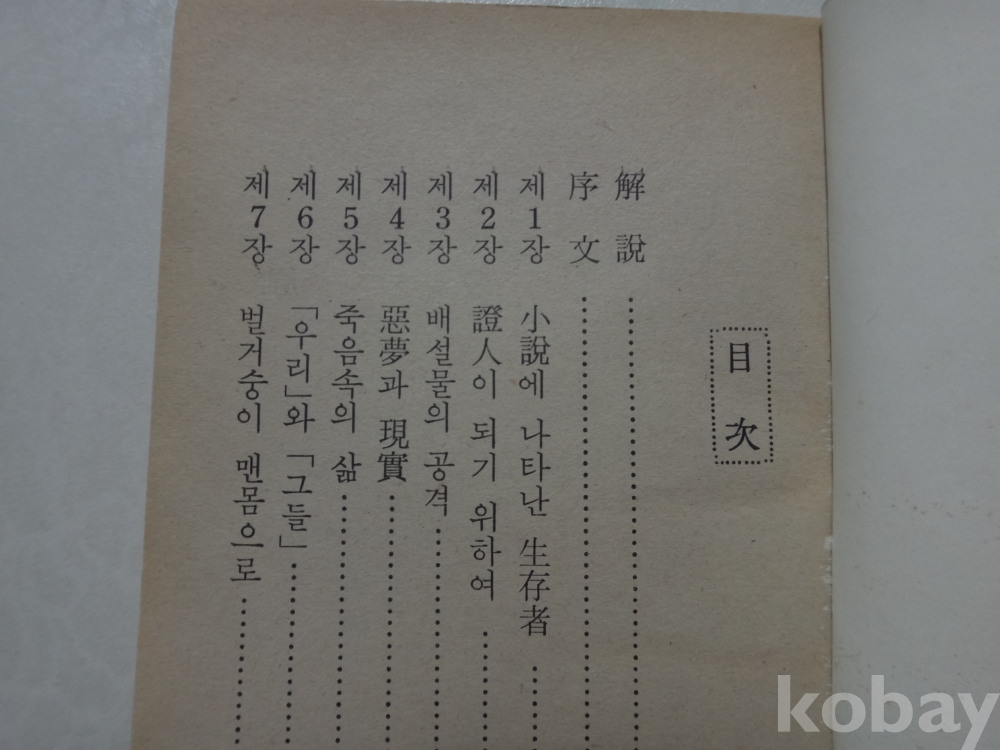 目次
解說
序文
제1장 小說에 나타난 生存者
제2장 證人이 되기 위하여
제3장 배설물의 공격
제4장 惡夢과 現實
제5장 죽음속의 삶
제6장 「우리」와 「그들」
제7장 벌거숭이 맨몸으로
kobay